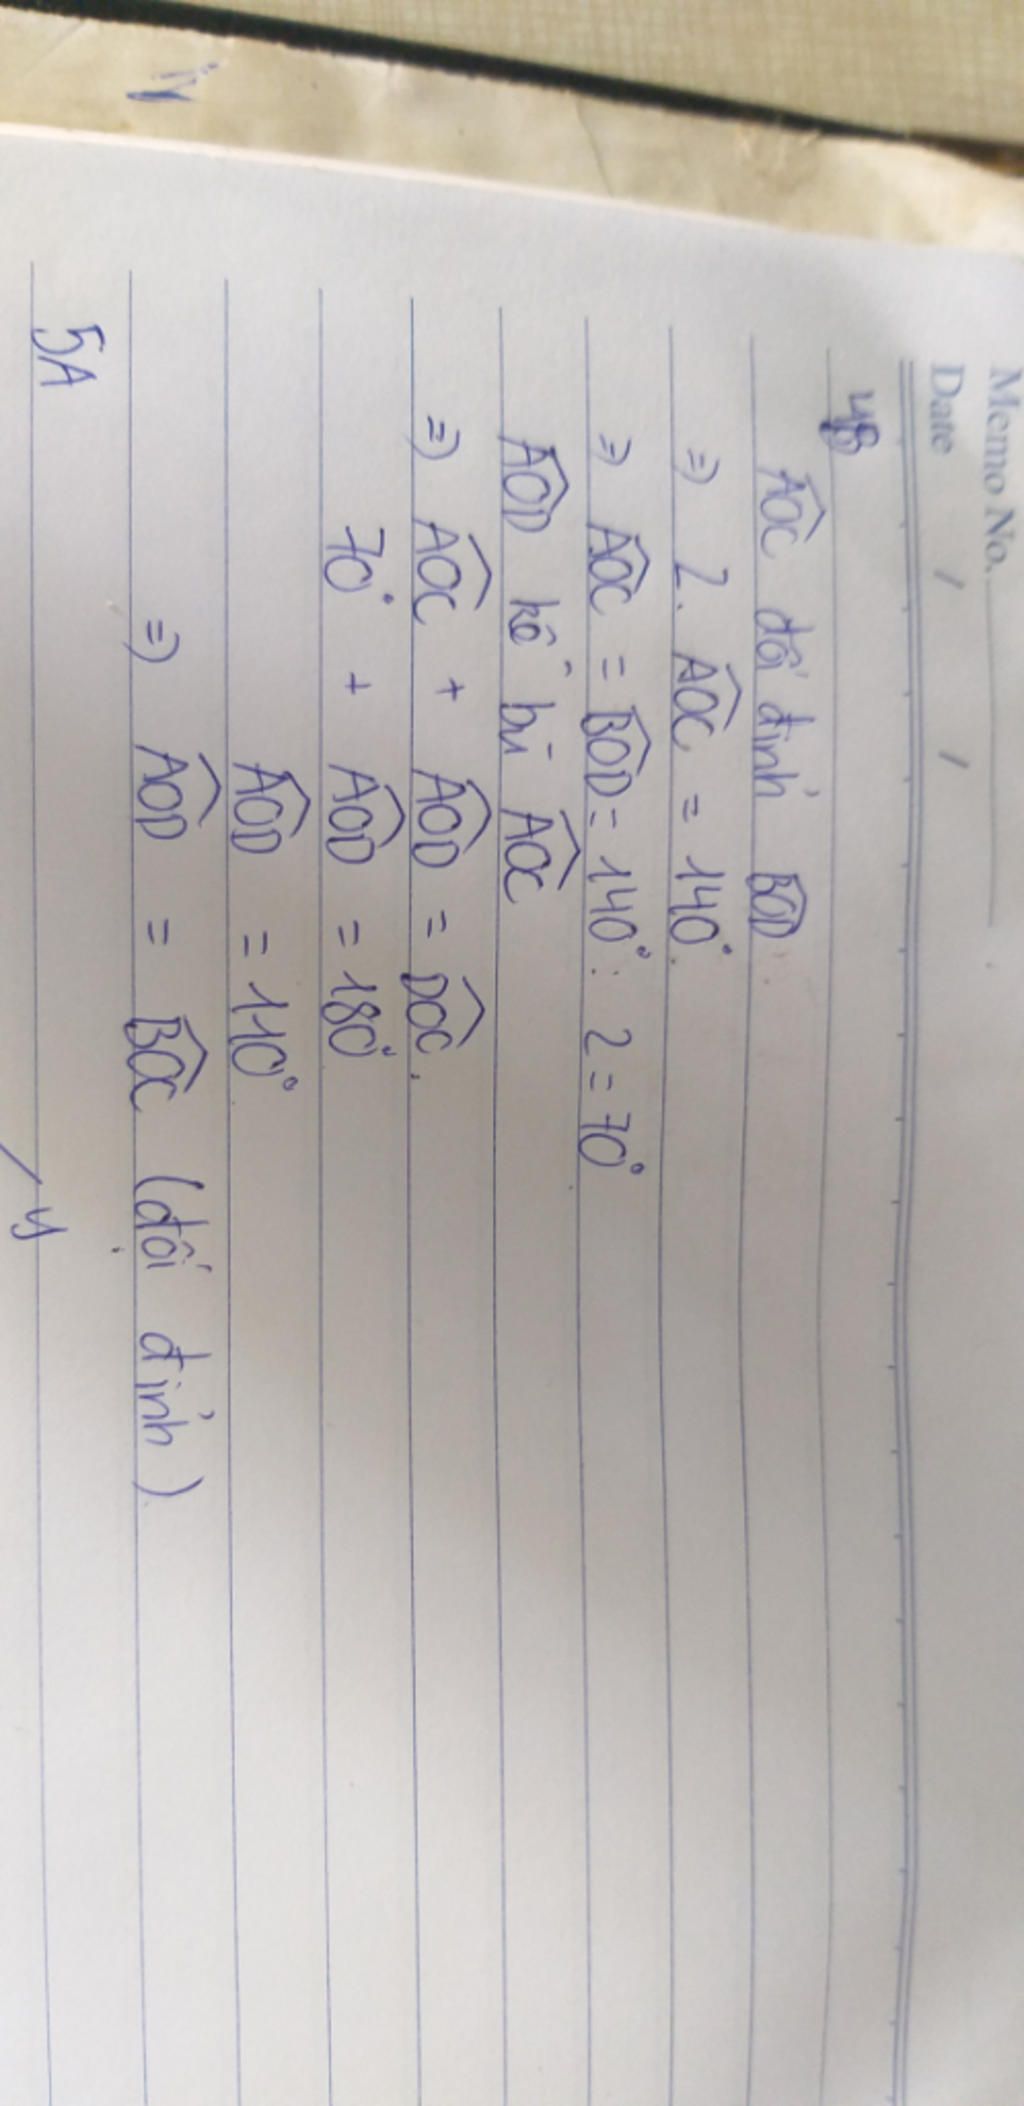 Memo No.
Date / /
4B
AOC đối đỉnh BOD
=> 2. AOC = 140°.
=> AOC = BOD = 140° : 2 = 70°
AOD kề bù AOC
=> AOC + AOD = DOC.
70° + AOD = 180°
AOD = 110°
=> AOD = BOC (đối đỉnh)
5A
y